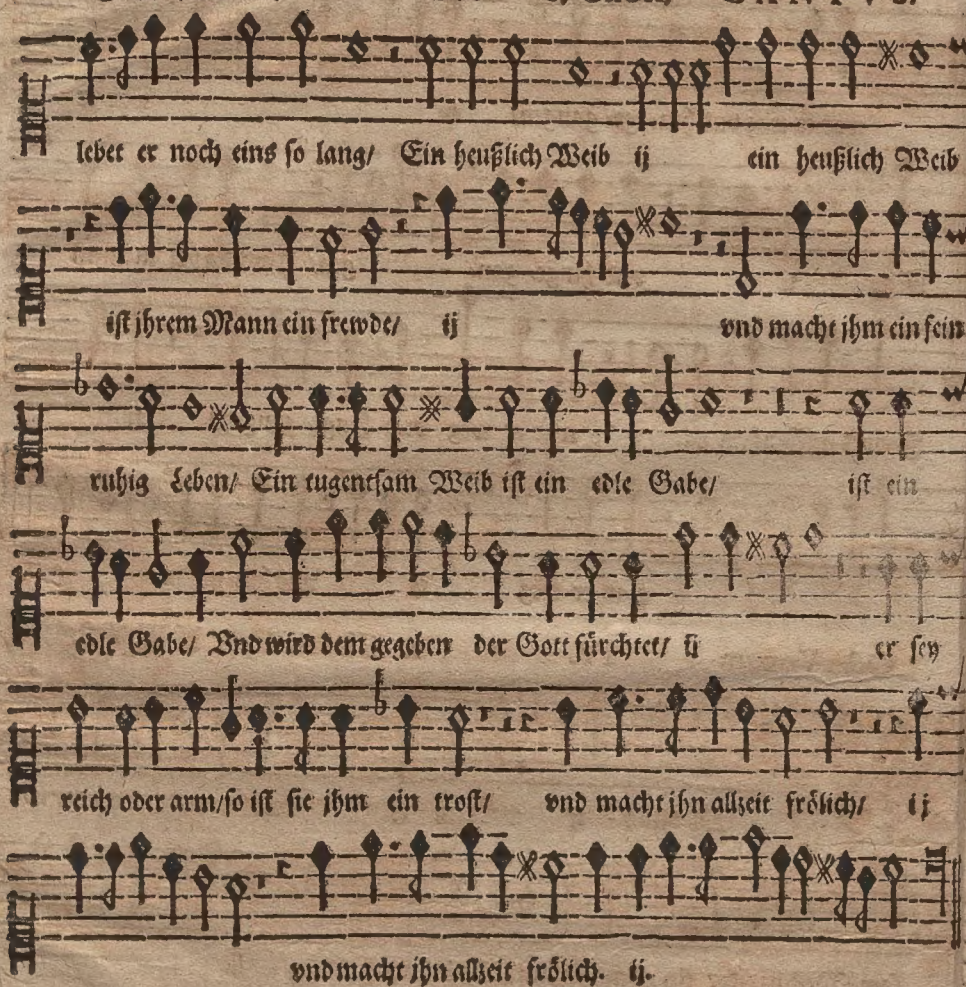 CANTVS.
lebet er noch eins so lang/ Ein heußlich Weib ij ein heußlich Weib
ist jhrem Mann ein frewde/ ij vnd macht jhm ein fein
ruhig Leben/ Ein tugentsam Weib ist ein edle Gabe/ ist ein
edle Gabe/ Vnd wird dem gegeben der Gott fürchtet/ ij er sey
reich oder arm/so ist sie jhm ein trost/ vnd macht jhn allzeit frölich/ ij
vnd macht jhn allzeit frölich. ij.